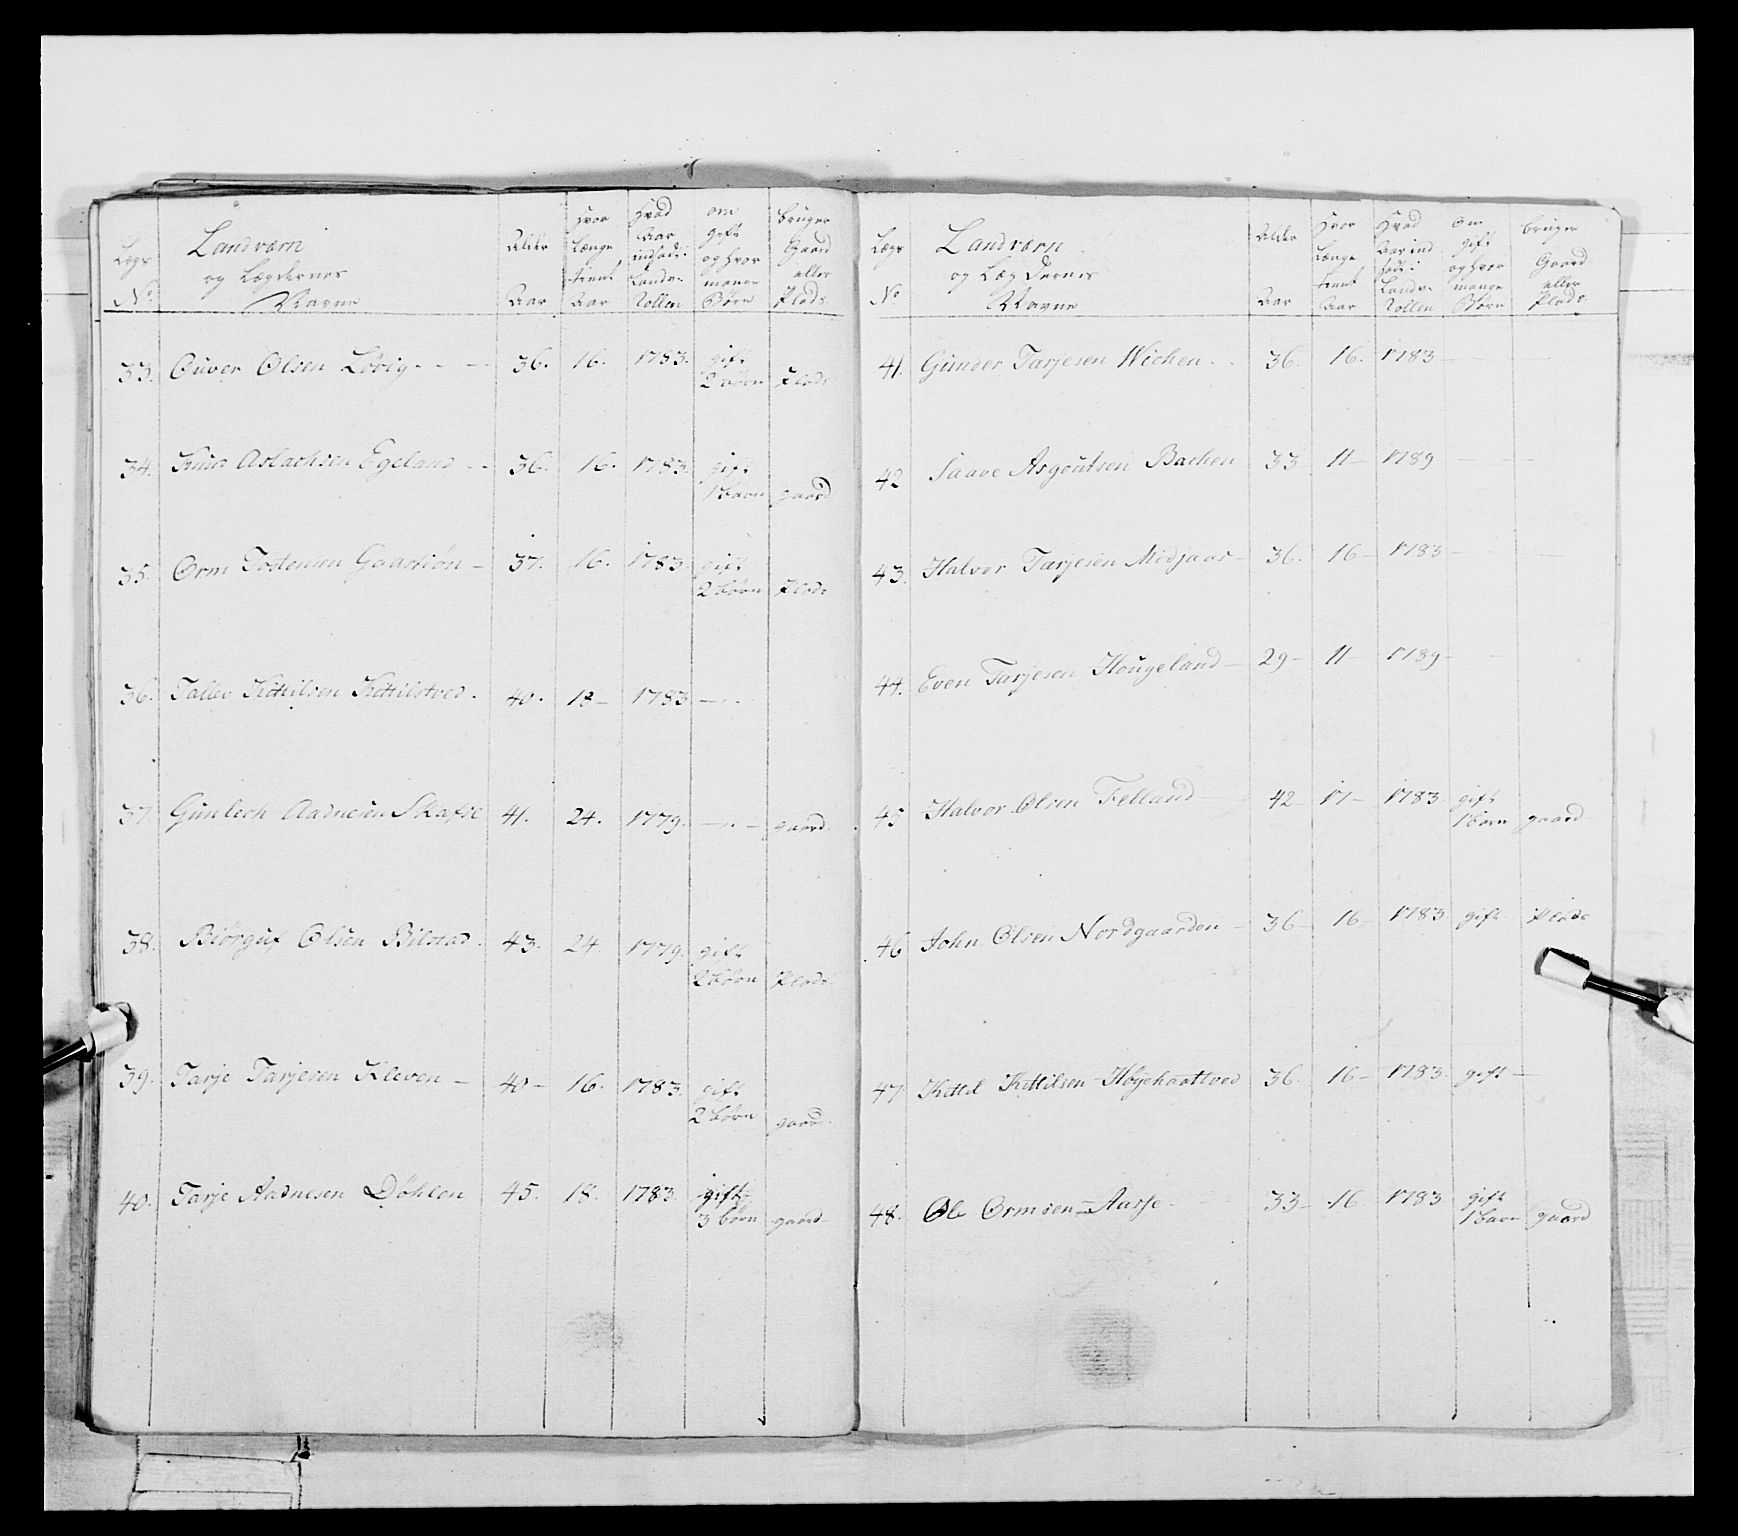 Lægs No
Landværn og Lægdernes Navne
Alder Aar
Hvor længe tient Aar
Hvad Aar indsadt i Landv: Rollen
om gift og hvor mange Børn
bruger Gaard eller Plads
33. Ouver Olsen Lövig - - - 36. 16. 1783. gift
2 börn Plads
34. Knud Aslachsen Egeland - - 36. 16. 1783. gift
1 barn gaard
35. Orm Tostensen Gaasliön - 37. 16. 1783. gift
2 börn Plads
36. Tallev Kittilsen Kittilstved. 40. 18 - 1783 - . .
37. Gunlech Aadnesen Skafse 41. 24. 1779. - " - gaard.
38. Biörguf Olsen Bilstad. 43. 24 1779. gift
2 börn Plads.
39. Tarje Tarjesen Kleven - 40 - 16. 1783. gift
2 börn gaard.
40. Tarje Aadnesen Döhlen 45. 18. 1783. gift
3 börn gaard -
Lægs No
Landværn og Lægdernes Navne
Alder Aar
Hvor Længe tient Aar
Hvad Aar ind sadt i Landv: Rollen
Om gift og hvor mange Börn
bruger Gaard eller Plads
41. Gunder Tarjesen Wichen. . 36. 16. 1783 -
42 Saave Asgoutsen Bachen 33 11 - 1789 - -
43. Halvor Tarjesen Midjaas - 36. 16 - 1783 - -
44. Even Tarjesen Hougeland - 29 - 11 - 1789 - -
45 Halvor Olsen Felland - 42 - 17 - 1783. gift
1 barn gaard -
46 John Olsen Nordgaarden - 36 - 16 - 1783 gift - Plads
47 Kittil Kittilsen Höyehaattved 36. 16 - 1783. gift -
48. Ole Ormsen - Aasje - 33 - 16. 1783. gift
1 barn gaard